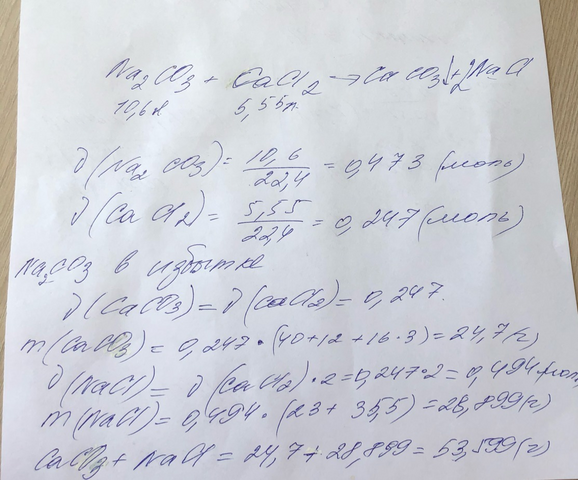 Na2CO3 + CaCl2 → CaCO3↓ + 2NaCl
10,6л 5,55л
ν(Na2CO3) = 10,6/22,4 = 0,473 (моль)
ν(CaCl2) = 5,55/22,4 = 0,247 (моль)
Na2CO3 в избытке
ν(CaCO3) = ν(CaCl2) = 0,247.
m(CaCO3) = 0,247 · (40+12+16·3) = 24,7(г)
ν(NaCl) = ν(CaCl2) · 2 = 0,247·2 = 0,494 моль
m(NaCl) = 0,494 · (23 + 35,5) = 28,899(г)
CaCO3 + NaCl = 24,7 + 28,899 = 53,599(г)